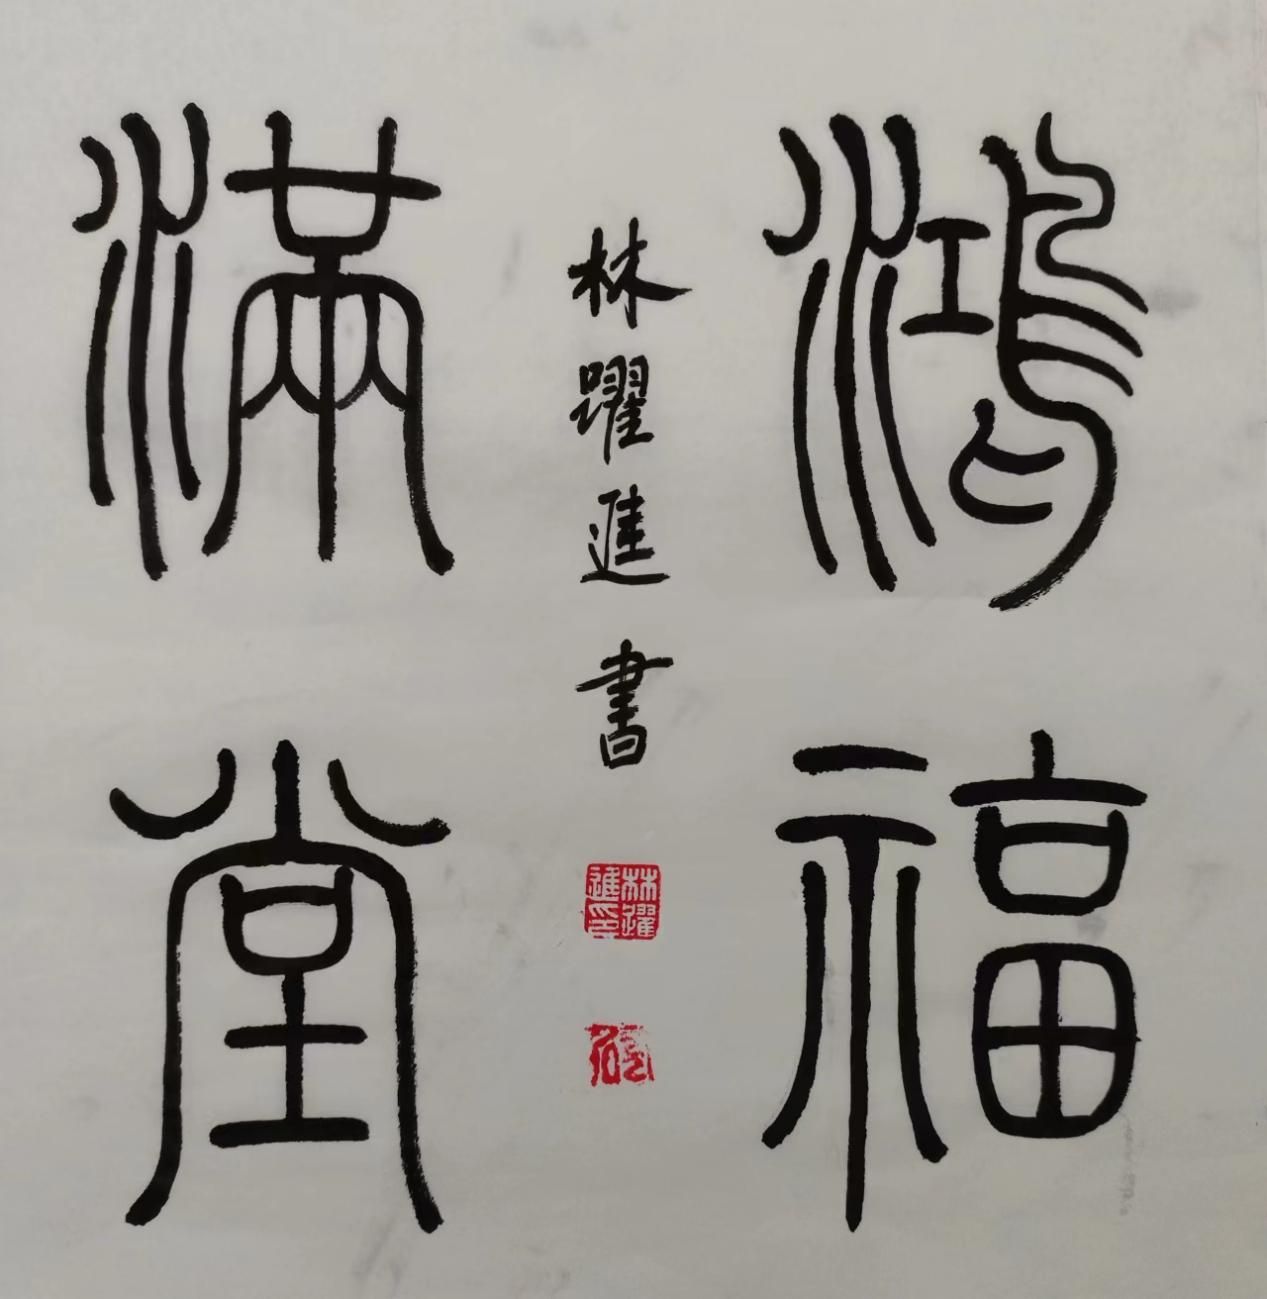 鴻福
滿堂
林躍進書
林躍進印